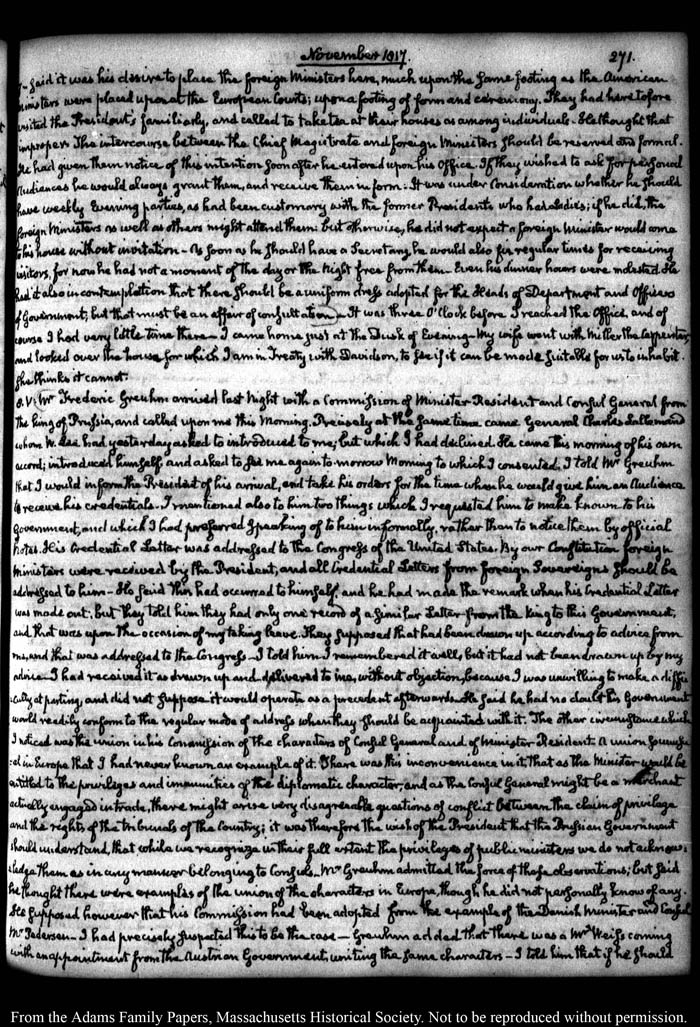 November 1817.
271.
said it was his desire to place the foreign Ministers here, much upon the same footing as the American
Ministers were placed upon at the European Courts; upon a footing of form and ceremony. They had heretofore
visited the Presidents familiarly, and called to take tea at their houses as among individuals. He thought that
improper. The intercourse between the Chief Magistrate and foreign Ministers should be reserved and formal.
He had given them notice of this intention soon after he entered upon his Office. If they wished to ask for personal
Audiences he would always grant them, and receive them in form. It was under consideration whether he should
have weekly Evening parties, as had been customary with the former Presidents who had Ladies; if he did, the
foreign Ministers as well as others might attend them: but otherwise, he did not expect a foreign Minister would come
to his house without invitation. As soon as he should have a Secretary, he would also fix regular times for receiving
visitors, for now he had not a moment of the day or the Night free from them. Even his dinner hours were molested. He
had it also in contemplation that there should be a uniform dress adopted for the Heads of Department and Officers
of Government; but that must be an affair of consultation. It was three O'Clock before I reached the Office, and of
course I had very little time there. I came home just at the Dusk of Evening. My wife went with Miller the Carpenter,
and looked over the house for which I am in Treaty with Davidson, to see if it can be made suitable for us to inhabit.
She thinks it cannot.
Mr Frederic Greuhm arrived last Night with a Commission of Minister Resident and Consul General from
the King of Prussia, and called upon me this Morning. Precisely at the same time came General Charles Lallemand
whom W. Lee had yesterday asked to introduced to me; but which I had declined. He came this morning of his own
accord; introduced himself, and asked to see me again to-morrow Morning to which I consented. I told Mr Greuhm
that I would inform the President of his arrival, and take his orders for the time when he would give him an Audience
to receive his credentials. I mentioned also to him two things which I requested him to make known to his
Government, and which I had preferred speaking of to him informally, rather than to notice them by official
Notes. His Credential Letter was addressed to the Congress of the United States. By our Constitution foreign
Ministers were received by the President, and all Credential Letters from foreign Sovereigns should be
addressed to him. He said this had occurred to himself, and he had made the remark when his Credential Letter
was made out: but they told him they had only one record of a similar Letter from the King to this Government;
and that was upon the occasion of my taking leave. They supposed that had been drawn up according to advice from
me, and that was addressed to the Congress. I told him I remembered it well; but it had not been drawn up by my
advice. I had received it as drawn up and delivered to me, without objection, because I was unwilling to make a diffi
culty at parting, and did not suppose it would operate as a precedent afterwards. He said he had no doubt his Government
would readily conform to the regular mode of address when they should be acquainted with it. The other circumstance which
I noticed was the union in his Commission of the characters of Consul General and of Minister Resident. A union so unusu
al in Europe that I had never known an example of it. There was this inconvenience in it, that as the Minister would be
entitled to the privileges and immunities of the diplomatic character, and as the Consul General might be a merchant
actually engaged in trade, there might arise very disagreeable questions of conflict between the claim of privilege
and the rights of the tribunals of the Country; it was therefore the wish of the President that the Prussian Government
should understand, that while we recognize in their full extent the privileges of public ministers we do not acknow:
ledge them as in any manner belonging to Consuls. Mr Greuhm admitted the force of these observations; but said
he thought there were examples of the union of the characters in Europe, though he did not personally know of any.
He supposed however that his Commission had been adopted from the example of the Danish Minister and Consul
Mr Pedersen. I had precisely suspected this to be the case. Greuhm added that there was a Mr Weiss coming
with an appointment from the Austrian Government, uniting the same characters. I told him that if he should
From the Adams Family Papers, Massachusetts Historical Society. Not to be reproduced without permission.